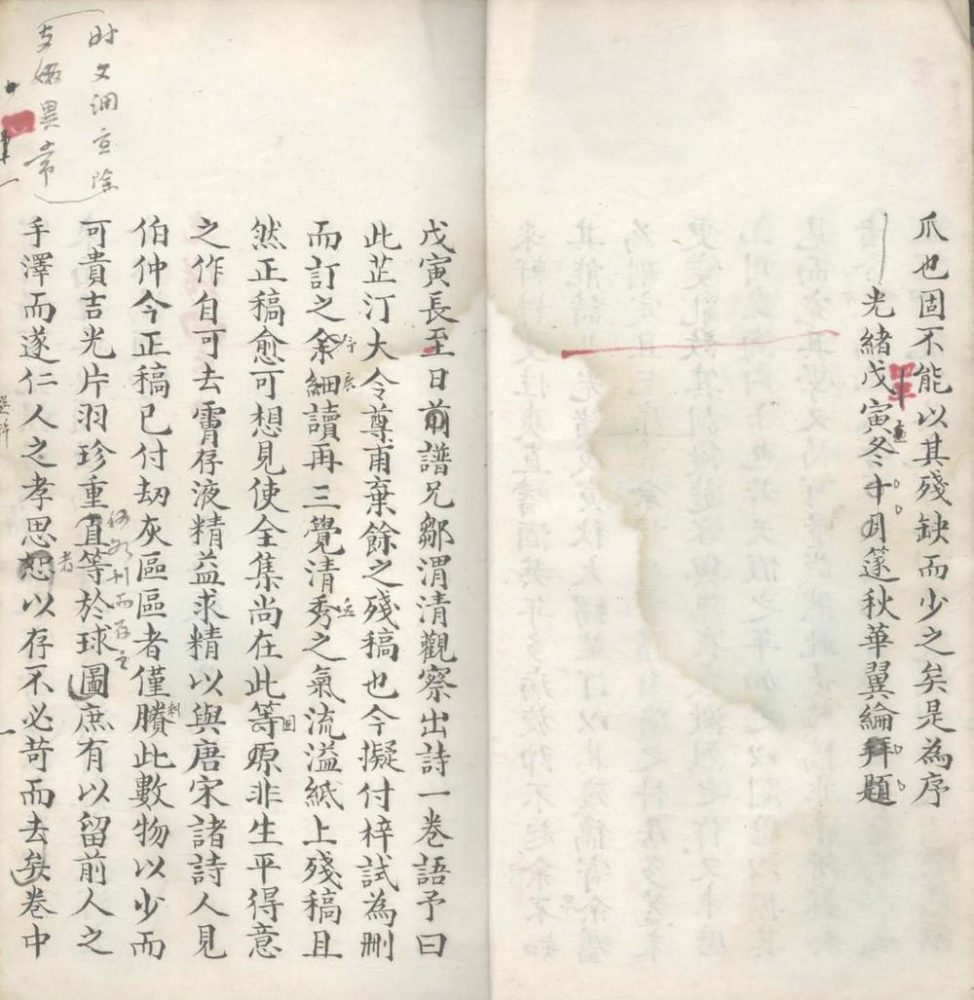 爪也固不能以其殘缺而少之矣是為序
光緒戊寅冬十月蓬秋華翼綸拜題
戊寅長至日前譜兄鄒渭清觀察出詩一卷語予曰
此芷汀大令尊甫棄餘之殘稿也今擬付梓試為刪
而訂之余細讀再三覺清秀之氣流溢紙上殘稿且
然正稿愈可想見使全集尚在此等原非生平得意
之作自可去膚存液精益求精以與唐宋諸詩人見
伯仲今正稿已付劫灰區區者僅賸此數物以少而
可貴吉光片羽珍重直等於球圖庶有以留前人之
手澤而遂仁人之孝思恕以存不必苛而去矣卷中
支 異常